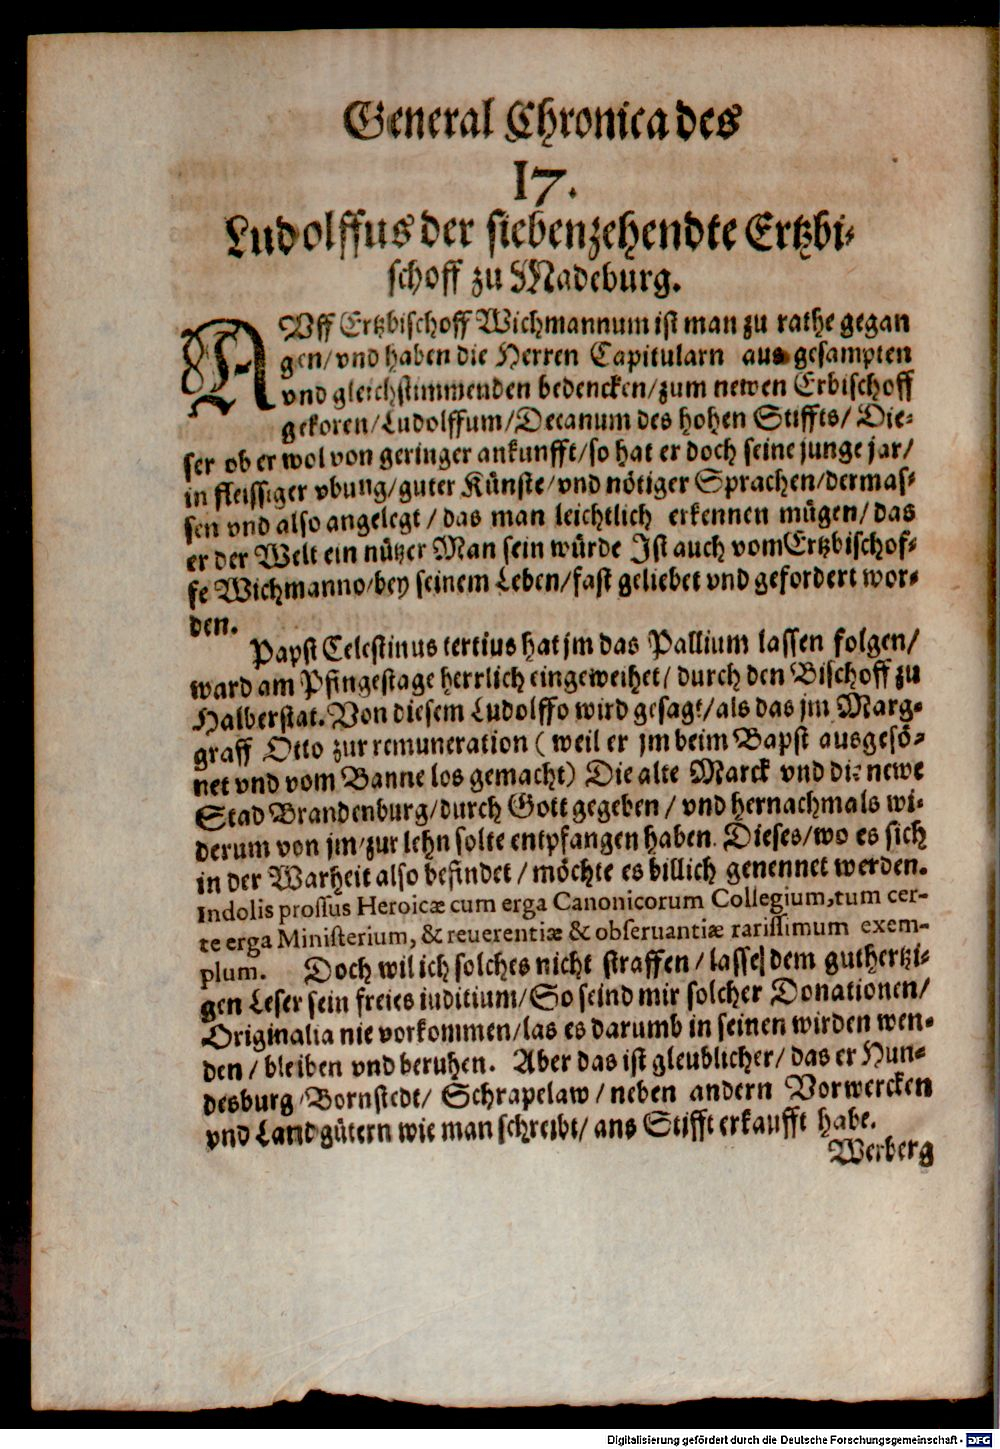 General Chronica des
17.
Ludolffus der siebenzehendte Ertzbi-
schoff zu Madeburg.
AVff Ertzbischoff Wichmannum ist man zu rathe gegan
gen/ vnd haben die Herren Capitularn aus gesampten
vnd gleichstimmenden bedencken/ zum newen Erbischoff
gekoren/ Ludolffum/ Decanum des hohen Stiffts/ Die-
ser ob er wol von geringer ankunfft/ so hat er doch seine junge jar/
in fleissiger vbung/ guter Künste/ vnd nötiger Sprachen/ dermas-
sen vnd also angelegt / das man leichtlich erkennen mügen/ das
er der Welt ein nützer Man sein würde Ist auch vom Ertzbischof-
fe Wichmanno/ bey seinem Leben/ fast geliebet vnd gefordert wor-
den.
Papst Celestinus tertius hat jm das Pallium lassen folgen/
ward am Pfingestage herrlich eingeweihet/ durch den Bischoff zu
Halberstat. Von diesem Ludolffo wird gesagt/ als das jm Marg-
graff Otto zur remuneration ( weil er jm beim Bapst ausgesö-
net vnd vom Banne los gemacht) Die alte Marck vnd die newe
Stad Brandenburg/ durch Gott gegeben / vnd hernachmals wi-
derum von jm/ zur lehn solte entpfangen haben. Dieses/ wo es sich
in der Warheit also befindet / möchte es billich genennet werden.
Indolis prossus Heroicæ cum erga Canonicorum Collegium, tum cer-
te erga Ministerium, & reuerentiæ & obseruantiæ rarissimum exem-
plum. Doch wil ich solches nicht straffen / lasse dem guthertzi-
gen Leser sein freies iuditium/ So seind mir solcher Donationen/
Originalia nie vorkommen/ las es darumb in seinen wirden wen-
den / bleiben vnd beruhen. Aber das ist gleublicher/ das er Hun-
desburg/ Bornstedt/ Schrapelaw / neben andern Vorwercken
vnd Landgütern wie man schreibt/ ans Stifft erkaufft habe.
Werberg
Digitalisierung gefördert durch die Deutsche Forschungsgemeinschaft - DFG